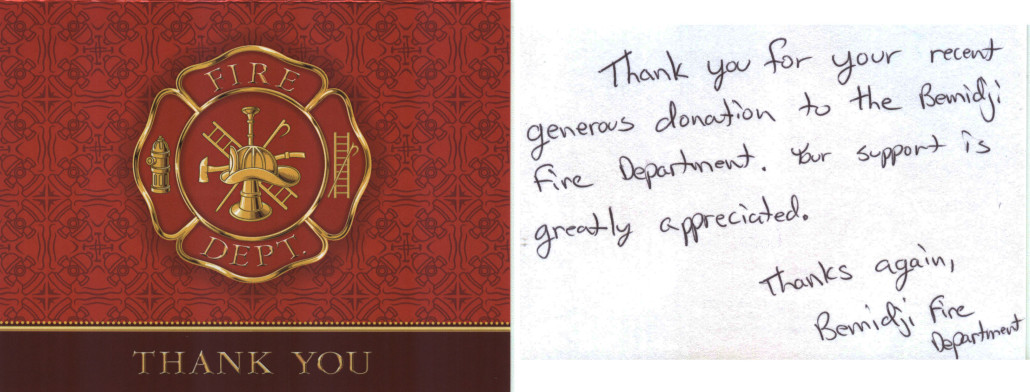 FIRE
DEPT.
THANK YOU
Thank you for your recent
generous donation to the Bemidji
Fire Department. Your support is
greatly appreciated.
Thanks again,
Bemidji Fire
Department